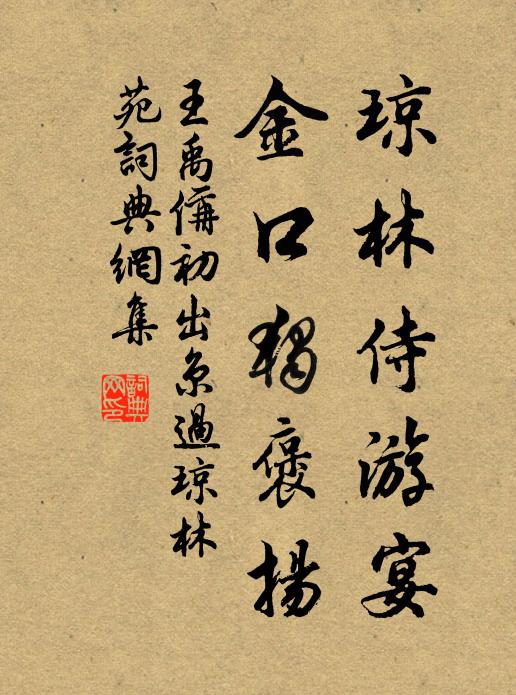 琼林侍游宴
金口獨褒揚
王禹偁初出京過琼林
苑詞典網集
詞典
网印